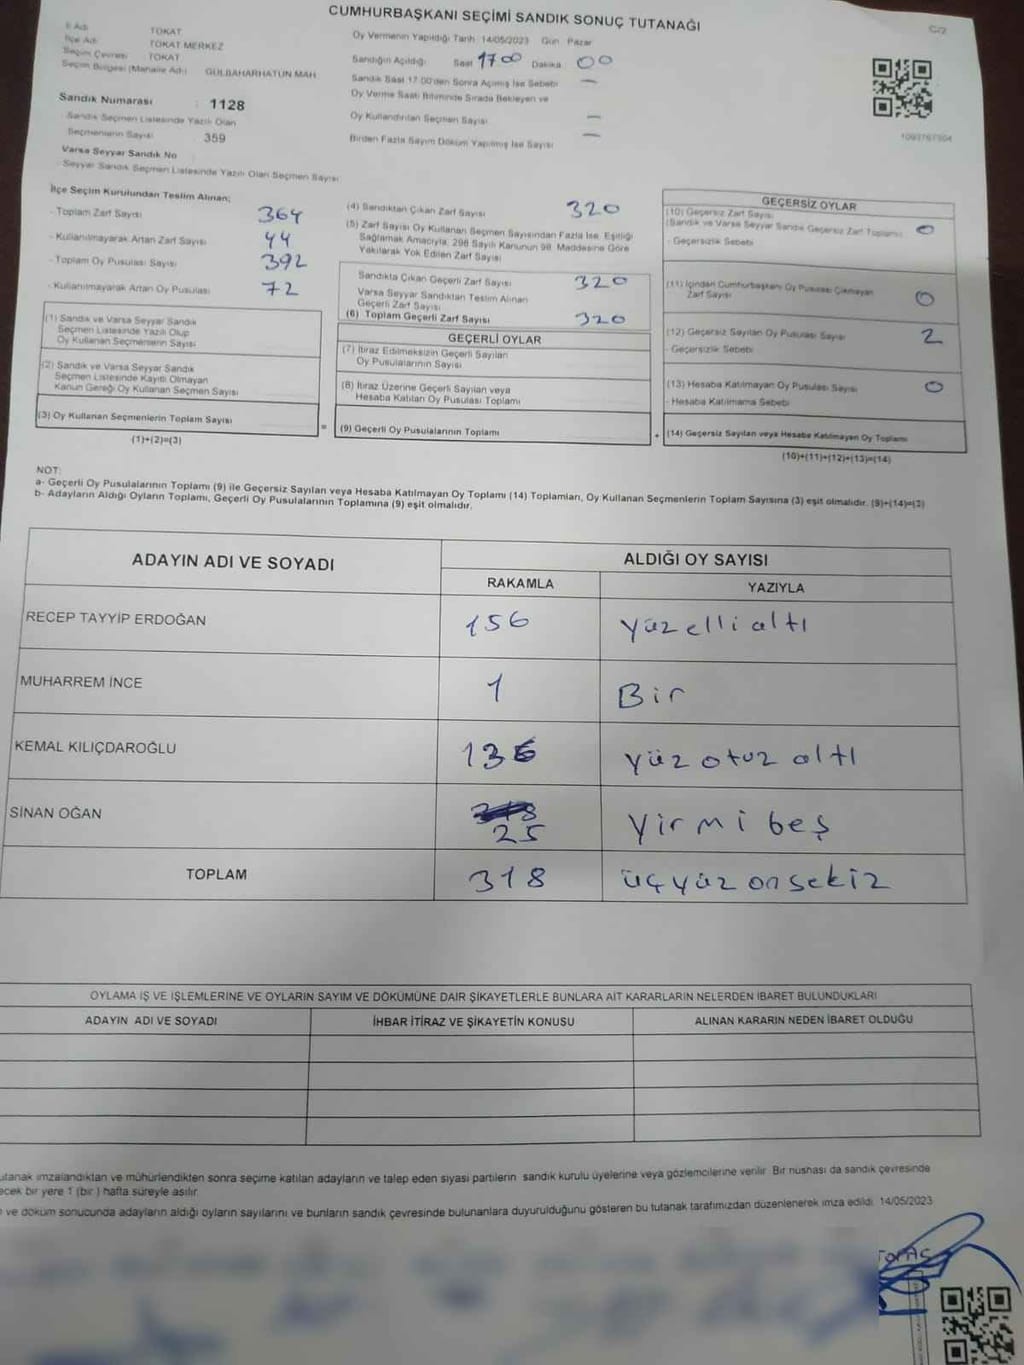 CUMHURBAŞKANI SEÇİMİ SANDIK SONUÇ TUTANAĞI
C/2
İl Adı TOKAT
İlçe Adı TOKAT MERKEZ
Seçim Çevresi TOKAT
Seçim Bölgesi (Mahalle Adı) GÜLBAHARHATUN MAH.
Sandık Numarası : 1128
- Sandık Seçmen Listesinde Yazılı Olan
Seçmenlerin Sayısı 359
Varsa Seyyar Sandık No
- Seyyar Sandık Seçmen Listesinde Yazılı Olan Seçmen Sayısı
Oy Vermenin Yapıldığı Tarih 14/05/2023 Gün Pazar
Sandığın Açıldığı Saat 17 00 Dakika 00
Sandık Saat 17:00'den Sonra Açılmış İse Sebebi —
Oy Verme Saati Bitiminde Sırada Bekleyen ve
Oy Kullandırılan Seçmen Sayısı —
Birden Fazla Sayım Döküm Yapılmış İse Sayısı —
İlçe Seçim Kurulundan Teslim Alınan;
- Toplam Zarf Sayısı 364
- Kullanılmayarak Artan Zarf Sayısı 44
- Toplam Oy Pusulası Sayısı 392
- Kullanılmayarak Artan Oy Pusulası 72
(1) Sandık ve Varsa Seyyar Sandık
Seçmen Listesinde Yazılı Olup
Oy Kullanan Seçmenlerin Sayısı
(2) Sandık ve Varsa Seyyar Sandık
Seçmen Listesinde Kayıtlı Olmayan
Kanun Gereği Oy Kullanan Seçmen Sayısı
(3) Oy Kullanan Seçmenlerin Toplam Sayısı
(1)+(2)=(3)
(4) Sandıktan Çıkan Zarf Sayısı 320
(5) Zarf Sayısı Oy Kullanan Seçmen Sayısından Fazla İse, Eşitliği
Sağlamak Amacıyla, 298 Sayılı Kanunun 98. Maddesine Göre
Yakılarak Yok Edilen Zarf Sayısı
Sandıkta Çıkan Geçerli Zarf Sayısı 320
Varsa Seyyar Sandıktan Teslim Alınan
Geçerli Zarf Sayısı
(6) Toplam Geçerli Zarf Sayısı 320
GEÇERLİ OYLAR
(7) İtiraz Edilmeksizin Geçerli Sayılan
Oy Pusulalarının Sayısı
(8) İtiraz Üzerine Geçerli Sayılan veya
Hesaba Katılan Oy Pusulası Toplamı
= (9) Geçerli Oy Pusulalarının Toplamı
GEÇERSİZ OYLAR
(10) Geçersiz Zarf Sayısı
(Sandık ve Varsa Seyyar Sandık Geçersiz Zarf Toplamı) 0
- Geçersizlik Sebebi
(11) İçinden Cumhurbaşkanı Oy Pusulası Çıkmayan
Zarf Sayısı 0
(12) Geçersiz Sayılan Oy Pusulası Sayısı 2
- Geçersizlik Sebebi
(13) Hesaba Katılmayan Oy Pusulası Sayısı 0
- Hesaba Katılmama Sebebi
+ (14) Geçersiz Sayılan veya Hesaba Katılmayan Oy Toplamı
(10)+(11)+(12)+(13)=(14)
NOT:
a- Geçerli Oy Pusulalarının Toplamı (9) ile Geçersiz Sayılan veya Hesaba Katılmayan Oy Toplamı (14) Toplamları, Oy Kullanan Seçmenlerin Toplam Sayısına (3) eşit olmalıdır. (9)+(14)=(3)
b- Adayların Aldığı Oyların Toplamı, Geçerli Oy Pusulalarının Toplamına (9) eşit olmalıdır.
ADAYIN ADI VE SOYADI
ALDIĞI OY SAYISI
RAKAMLA YAZIYLA
RECEP TAYYİP ERDOĞAN 156 yüzellialtı
MUHARREM İNCE 1 Bir
KEMAL KILIÇDAROĞLU 136 yüz otuz altı
SİNAN OĞAN 318
25 yirmi beş
TOPLAM 318 üçyüz onsekiz
OYLAMA İŞ VE İŞLEMLERİNE VE OYLARIN SAYIM VE DÖKÜMÜNE DAİR ŞİKAYETLERLE BUNLARA AİT KARARLARIN NELERDEN İBARET BULUNDUKLARI
ADAYIN ADI VE SOYADI İHBAR İTİRAZ VE ŞİKAYETİN KONUSU ALINAN KARARIN NEDEN İBARET OLDUĞU
utanak imzalandıktan ve mühürlendikten sonra seçime katılan adayların ve talep eden siyasi partilerin sandık kurulu üyelerine veya gözlemcilerine verilir. Bir nüshası da sandık çevresinde
ecek bir yere 1 (bir ) hafta süreyle asılır.
ve döküm sonucunda adayların aldığı oyların sayılarını ve bunların sandık çevresinde bulunanlara duyurulduğunu gösteren bu tutanak tarafımızdan düzenlenerek imza edildi. 14/05/2023